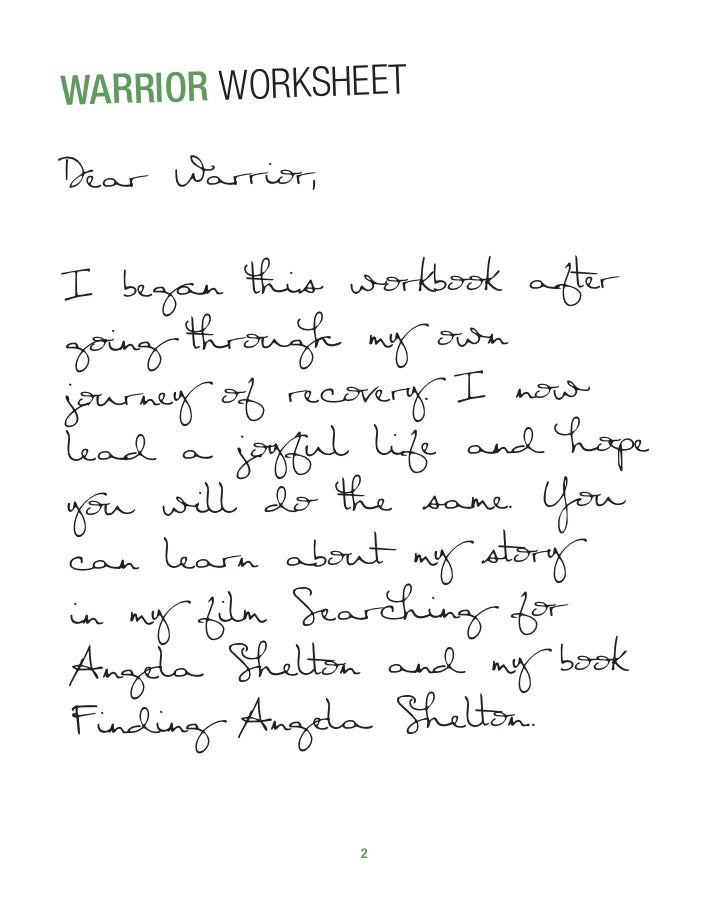 WARRIOR WORKSHEET
Dear Warrior,
I began this workbook after
going through my own
journey of recovery. I now
lead a joyful life and hope
you will do the same. You
can learn about my story
in my film Searching for
Angela Shelton and my book
Finding Angela Shelton.
2